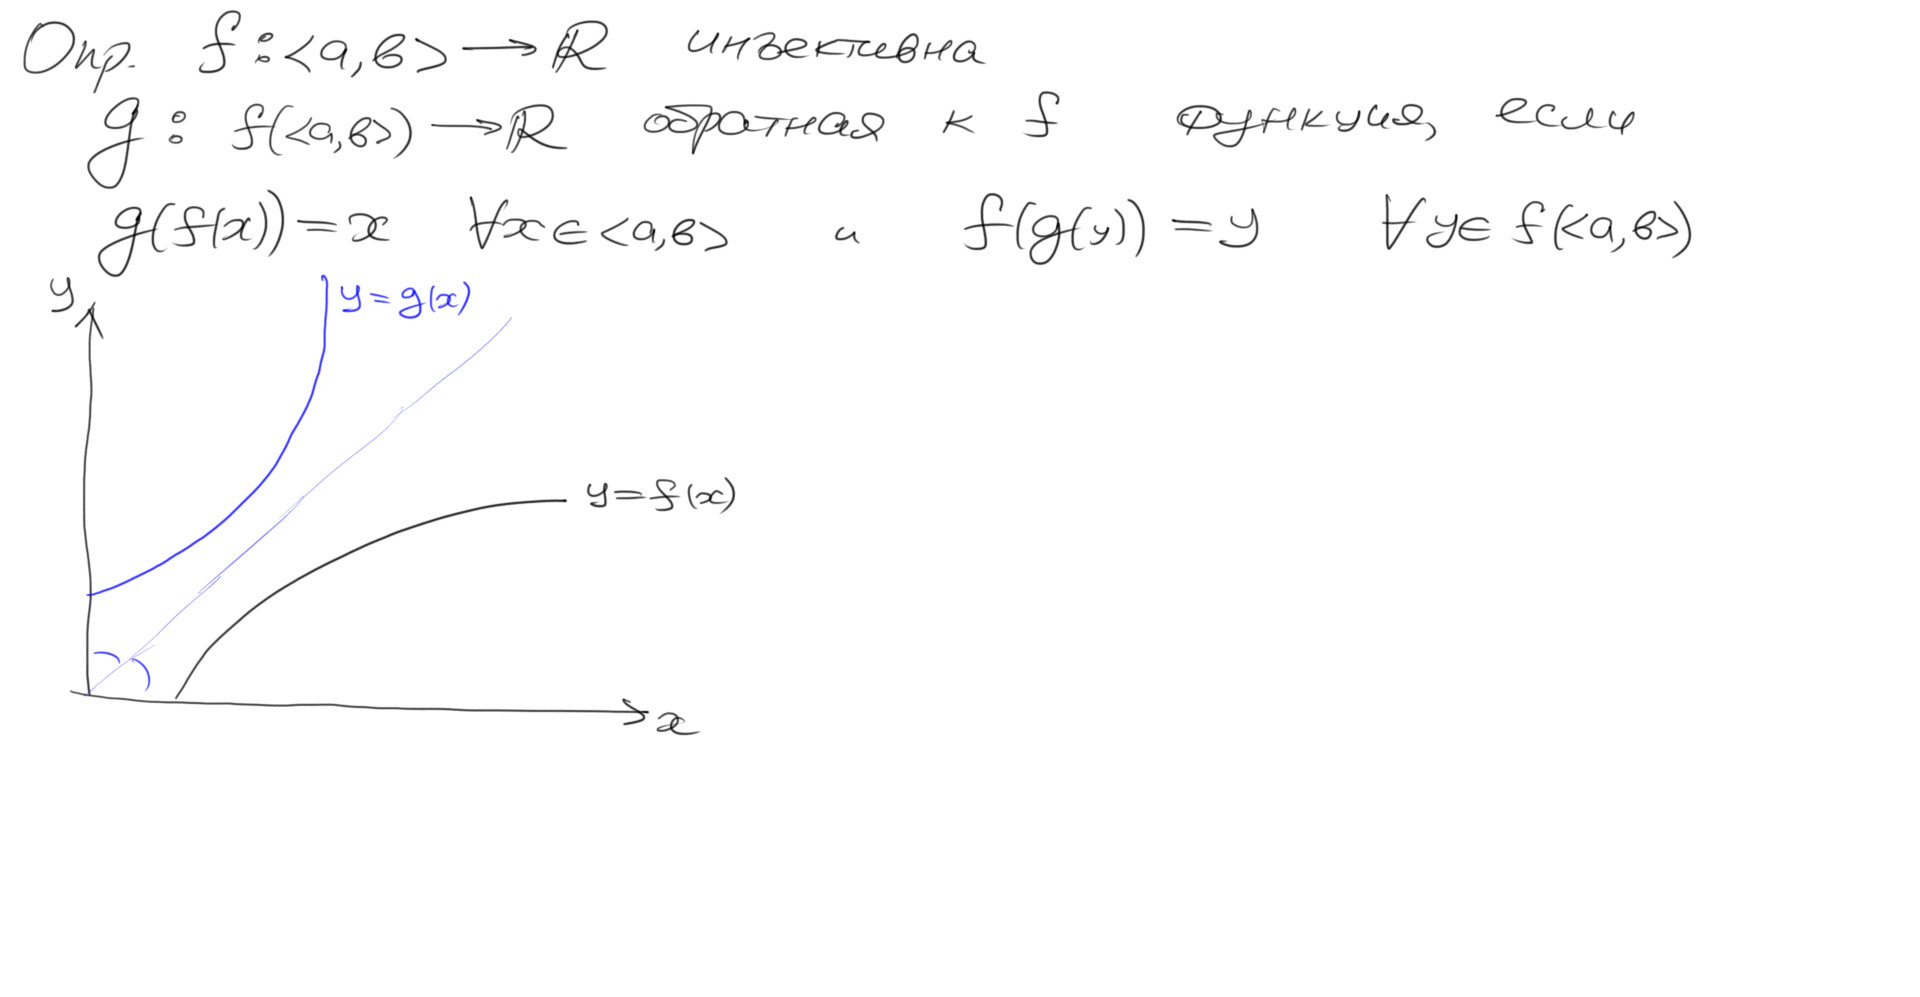 Опр. f:<a,b>→ℝ инъективна
g: f(<a,b>)→ℝ обратная к f функция, если
g(f(x))=x ∀x∈<a,b> и f(g(y))=y ∀y∈f(<a,b>)
y
y=g(x)
y=f(x)
x